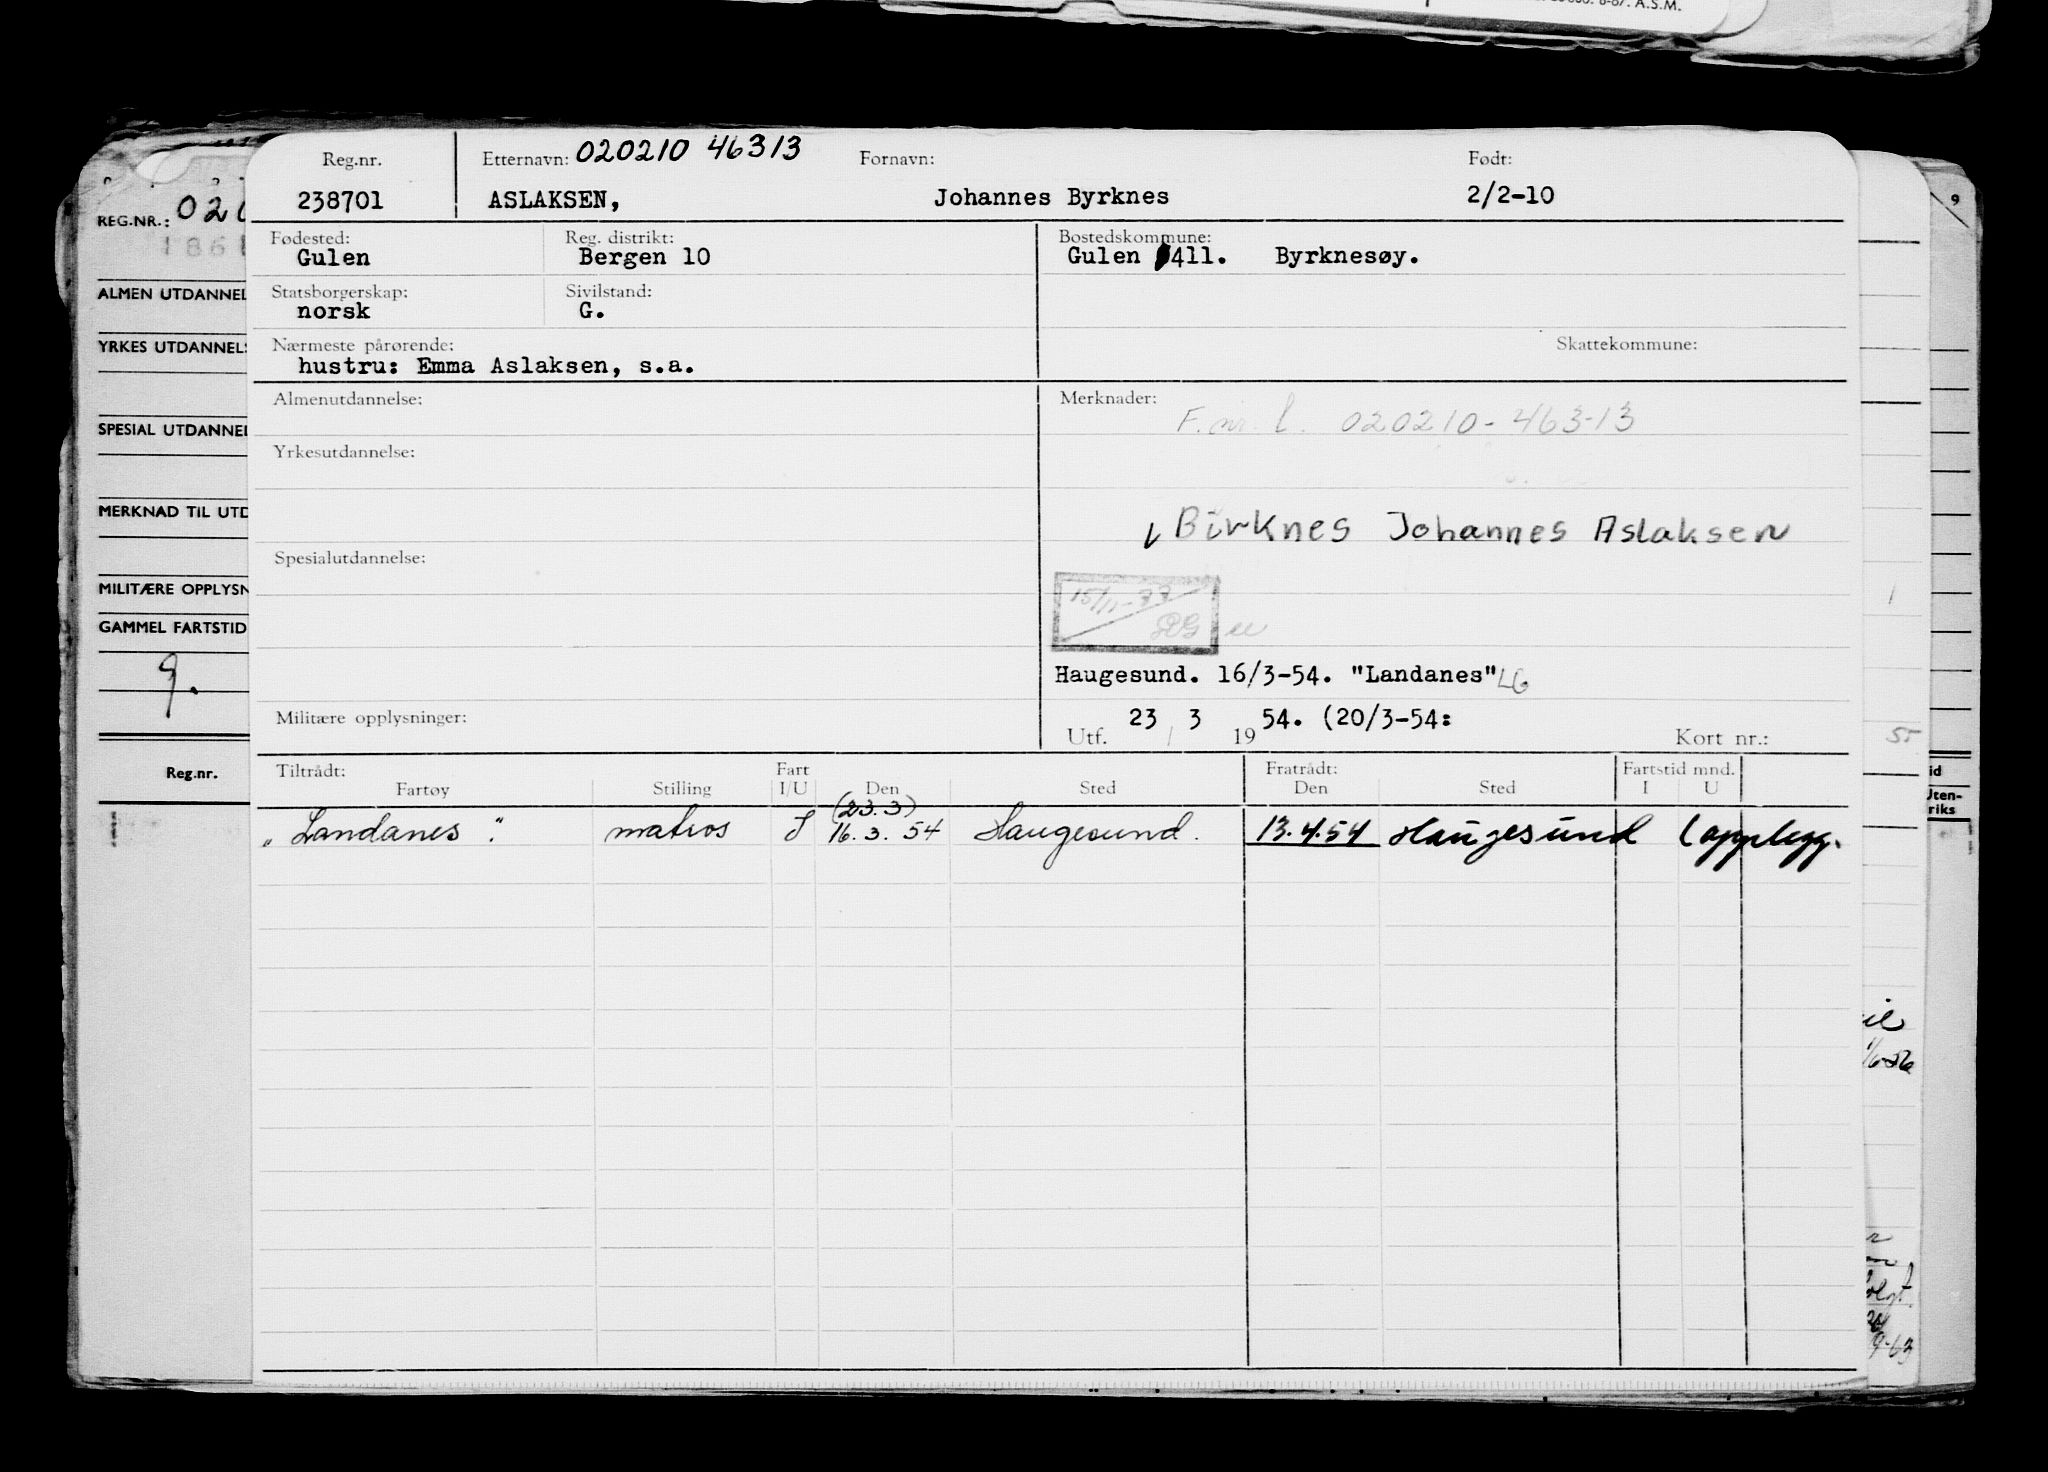 A.S.M.
Reg.nr. Etternavn: 020210 46313 Fornavn: Født:
238701 ASLAKSEN, Johannes Byrknes 2/2-10
Fødested: Reg. distrikt: Bostedskommune:
Gulen Bergen 10 Gulen 411. Byrknesøy.
Statsborgerskap: Sivilstand:
norsk G.
Nærmeste pårørende: Skattekommune:
hustru: Emma Aslaksen, s.a.
Almenutdannelse: Merknader:
F.nr. 020210-463-13
Yrkesutdannelse:
Birknes Johannes Aslaksen
Spesialutdannelse:
15/11-77
Haugesund. 16/3-54. "Landanes" LG
Militære opplysninger:
Utf. 23/3 1954. (20/3-54:
Kort nr.:
Tiltrådt: Fart Fratrådt: Fartstid mnd.
Fartøy Stilling I/U Den Sted Den Sted I U
(23.3)
"Landanes". matros I 16.3.54 Haugesund. 13.4.54 Haugesund (opplegg.
REG.NR.: 020
186
ALMEN UTDANNEL
YRKES UTDANNELS
SPESIAL UTDANNEL
MERKNAD TIL UTD
MILITÆRE OPPLYSN
GAMMEL FARTSTID
9.
Reg.nr.
9
1
55
id
Uten-
riks
9-63